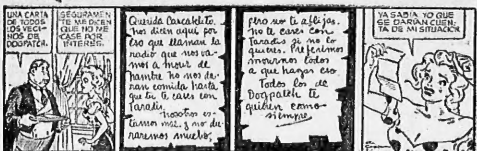 UNA CARTA
DE TODOS
LOS VECI-
NOS DE
DOGPATCH.
SEGURAMEN-
TE ME DICEN
QUE NO ME
CASE.
INTERÉS.
Querida
nos dicen aqui por
eso que llaman la
radio que nos va-
mos a morir de
hambre no nos da-
ran comida hasta
que tu te cases con
Taradis.
Nosotros es-
tamos mal y no du-
raremos mucho,
pero no te aflijas.
no te cases con
Taradis si no lo
quieres. Preferimos
morirnos todos
a que hagas eso.
Todos los de
Dogpatch te
quieren como
siempre
YA SABÍA YO QUE
SE DARÍAN CUEN-
TA DE MI SITUACIÓN